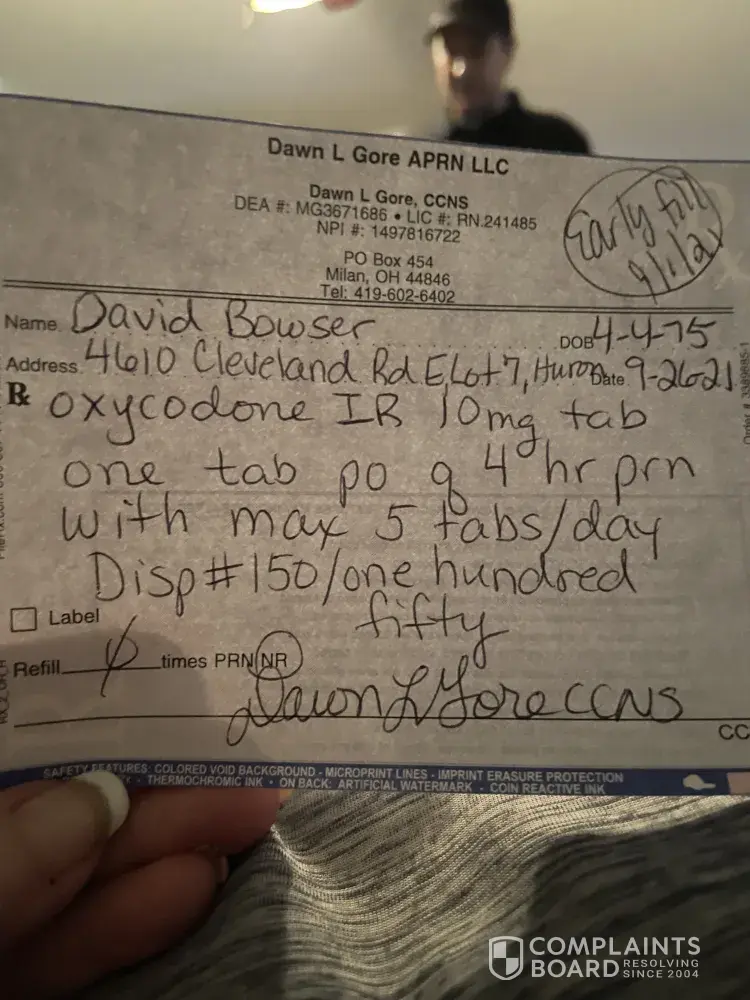 Dawn L Gore APRN LLC
Dawn L Gore, CCNS
DEA #: MG3671686 • LIC #: RN.241485
NPI #: 1497816722
PO Box 454
Milan, OH 44846
Tel: 419-602-6402
Early fill
9/1/21
Name David Bowser DOB 4-4-75
Address 4610 Cleveland Rd E, Lot 7, Huron Date 9-26-21
Rx oxycodone IR 10mg tab
one tab po q 4 hr prn
with max 5 tabs/day
Disp #150/one hundred
fifty
Label
Refill ∅ times PRN NR
Dawn L Gore CCNS
CC
SAFETY FEATURES: COLORED VOID BACKGROUND - MICROPRINT LINES - IMPRINT ERASURE PROTECTION
- THERMOCHROMIC INK • ON BACK: ARTIFICIAL WATERMARK - COIN REACTIVE INK
COMPLAINTS
BOARD RESOLVING
SINCE 2004